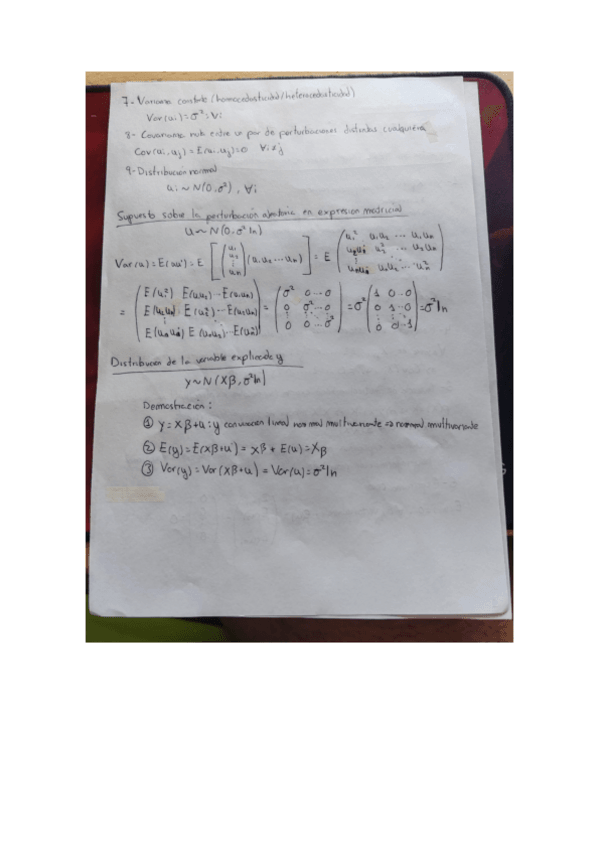 7- Varianza constante (homocedasticidad/heterocedasticidad)
Var(ui)=σ²; ∀i
8- Covarianza nula entre un par de perturbaciones distintas cualquiera
Cov(ui,uj)=E(ui,uj)=0 ∀i≠j
9- Distribución normal
ui ~ N(0,σ²), ∀i
Supuesto sobre la perturbación aleatoria en expresión matricial
U ~ N(0,σ²In)
Var(u)=E(uu')=E[(u1 u2 ⋮ un)(u1 u2 ... un)] = E(u1² u1u2 ... u1un
u2u1 u2² ... u2un
⋮
unu1 unu2 ... un²)
= (E(u1²) E(u1u2) ... E(u1un)
⋮
) = (σ² 0 ... 0
0 σ² ... 0
⋮ ⋮ ⋱ ⋮
0 0 ... σ²) = σ²(1 0 ... 0
0 1 ... 0
⋮ ⋮ ⋱ ⋮
0 0 ... 1) = σ²In
Distribución de la variable explicada y
y ~ N(Xβ, σ²In)
Demostración:
① y = Xβ+u; y lineal normal multivariante → normal multivariante
② E(y) = E(Xβ+u) = Xβ + E(u) = Xβ
③ Var(y) = Var(Xβ+u) = Var(u) = σ²In